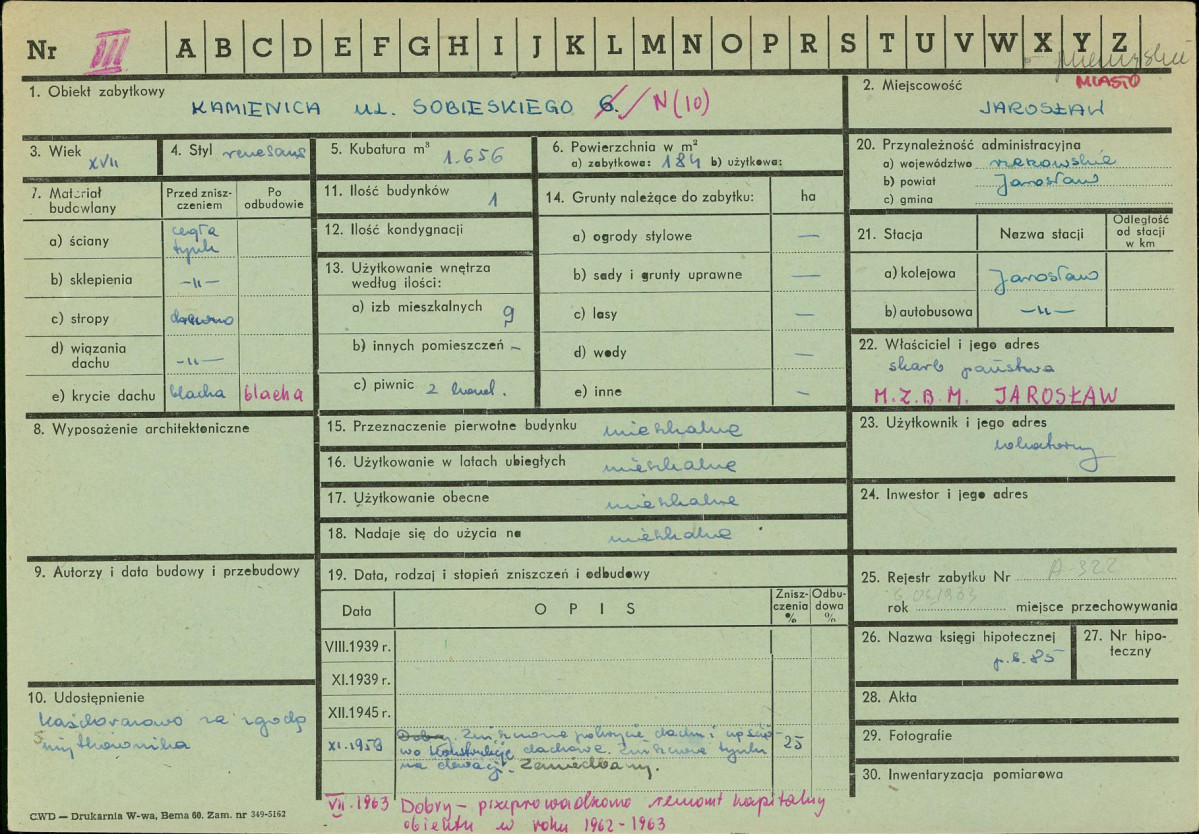 Nr III A B C D E F G H I J K L M N O P R S T U V W X Y Z
przemyskie
MIASTO
1. Obiekt zabytkowy
KAMIENICA UL. SOBIESKIEGO 6. / N(10)
2. Miejscowość
JAROSŁAW
3. Wiek XVII
4. Styl renesans
5. Kubatura m³ 1.656
6. Powierzchnia w m²
a) zabytkowa: 184 b) użytkowa:
20. Przynależność administracyjna
a) województwo rzeszowskie
b) powiat Jarosław
c) gmina
7. Materiał budowlany
Przed zniszczeniem
Po odbudowie
a) ściany cegła tynk
b) sklepienia –„–
c) stropy drewno
d) wiązania dachu –„–
e) krycie dachu blacha blacha
11. Ilość budynków 1
12. Ilość kondygnacji
13. Użytkowanie wnętrza według ilości:
a) izb mieszkalnych 9
b) innych pomieszczeń –
c) piwnic 2 kond.
14. Grunty należące do zabytku: ha
a) ogrody stylowe –
b) sady i grunty uprawne –
c) lasy –
d) wody –
e) inne –
21. Stacja
Nazwa stacji
Odległość od stacji w km
a) kolejowa Jarosław
b) autobusowa –„–
22. Właściciel i jego adres
skarb państwa
M.Z.B.M. JAROSŁAW
8. Wyposażenie architektoniczne
15. Przeznaczenie pierwotne budynku mieszkalne
16. Użytkowanie w latach ubiegłych mieszkalne
17. Użytkowanie obecne mieszkalne
18. Nadaje się do użycia na mieszkalne
23. Użytkownik i jego adres
lokatorzy
24. Inwestor i jego adres
9. Autorzy i data budowy i przebudowy
19. Data, rodzaj i stopień zniszczeń i odbudowy
Data
OPIS
Zniszczenia %
Odbudowa %
VIII.1939 r.
XI.1939 r.
XII.1945 r.
XI.1958 Dobry. Zniszczone pokrycie dachu i częścio-
wo konstrukcje dachowe. Zniszczone tynki
na elewacji. Zaniedbany.
25
VII.1963 Dobry – przeprowadzono remont kapitalny
obiektu w roku 1962-1963
25. Rejestr zabytku Nr A-322
rok miejsce przechowywania
26. Nazwa księgi hipotecznej
p.b. 85
27. Nr hipoteczny
10. Udostępnienie
za zgodą
użytkownika
28. Akta
29. Fotografie
30. Inwentaryzacja pomiarowa
CWD — Drukarnia W-wa, Bema 60. Zam. nr 349-5162